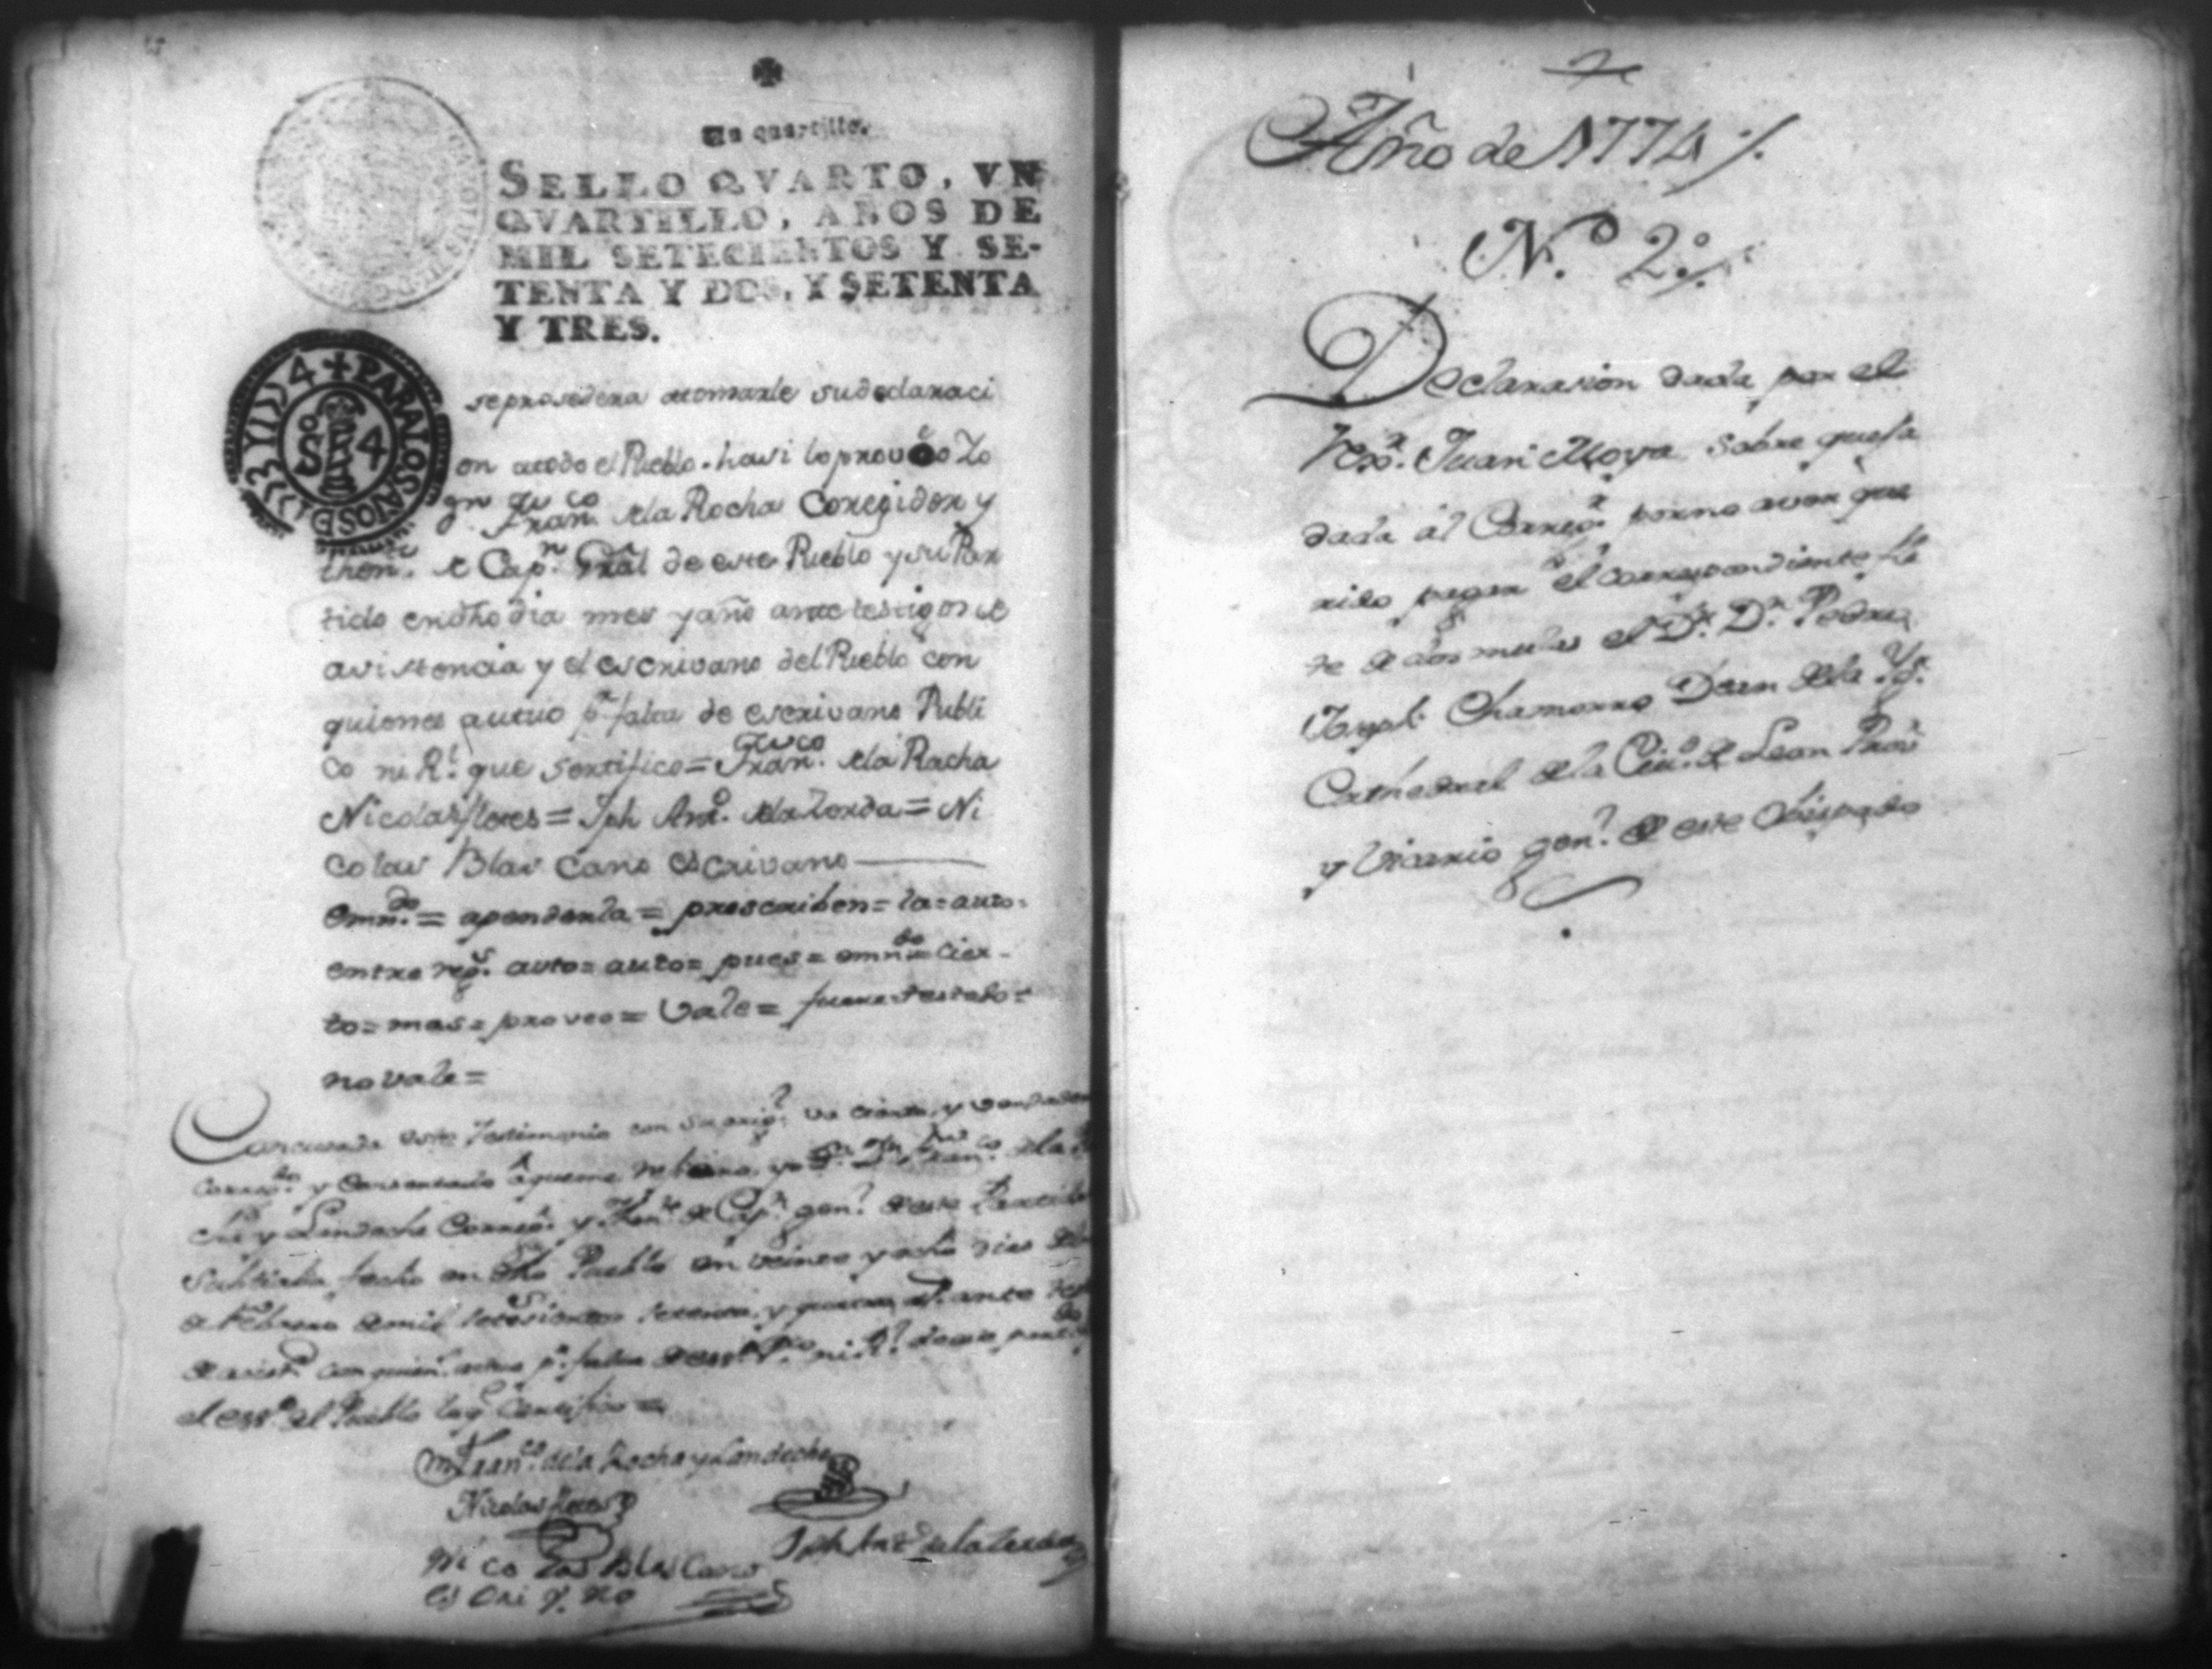 Un quartillo.
SELLO QVARTO, VN
QVARTILLO, AÑOS DE
MIL SETECIENTOS Y SE-
TENTA Y DOS, Y SETENTA
Y TRES.
PARA LOS AÑOS DE 1773 Y 1774
So 4
se prosedera atomarle sudeclaraci
on atodo el Pueblo. hasi loproveo Yo
Franco. dela Rocha Coregidor y
then.e de Cap.n Gral de este Pueblo y su Par
tido endho dia mes y año ante testigos de
asistencia y el escrivano del Pueblo con
quienes autuo p.r falta de escrivano Publi
co ni R.l que sertifico = Franco. dela Rocha
Nicolas flores = Jph Ant.o dela Zerda = Ni
colas Blas Cano escrivano
Emn.do = apendenla = proscriben = la = auto =
entre reg.s auto = auto = pues = emn.do = cier-
to = mas = proveo = Vale = testado =
no vale =
Concuerda este Testimonio con su orig.l va cierto, y
correg.do y Consertado aqueme refiero, yo D.n Fran.co dela
cha y Landeche Correg.r y Then.te de Cap.n gen.l de este Partido
Subtiaba, fecho en dho Pueblo en veinte y ocho dias del
de Febrero de mil setesientos setenta, y quatro a.s ante
de asist.a con quien.s actuo p.r falta de ess.no P.co ni R.l deeste
el ess.no del Pueblo Certifico =
Fran.co dela Rocha y Landeche
Nicolas flores
Jph Ant.o dela Zerda
Ni co las Blas Cano
es Cri v. no
Año de 1774 /.
N.o 2.o /.
Declarasion dada por el
Juan Moya sobre quexa
dada al Correg.r por no aver que
rido pagar el correspondiente fle
te de dos mulas el D.r D.n Pedro
Joseph Chamorro Dean dela Yg.a
Cathedral dela Ciu.d de Leon Prov.r
y Vicario gen.l de este Obispado